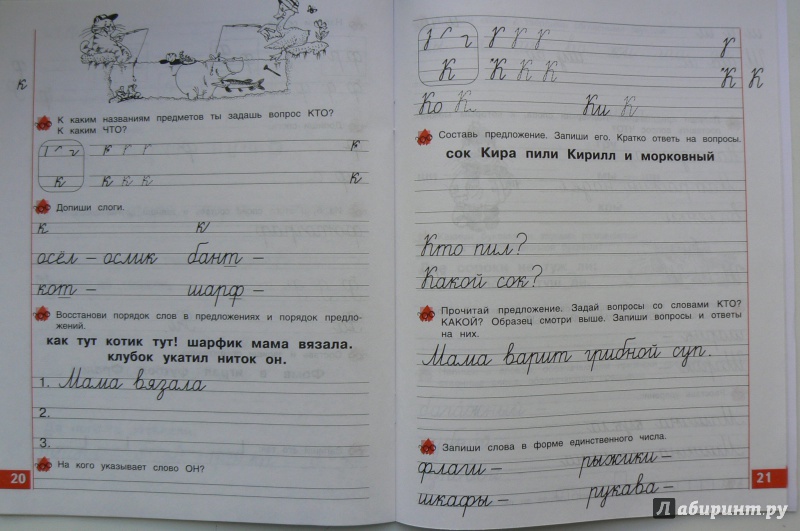 к
К каким названиям предметов ты задашь вопрос КТО?
К каким ЧТО?
к
к к к к к
Допиши слоги.
к к
осёл – ослик бант –
кот – шарф –
Восстанови порядок слов в предложениях и порядок предло-
жений.
как тут котик тут! шарфик мама вязала.
клубок укатил ниток он.
1. Мама вязала
2.
3.
На кого указывает слово ОН?
20
К К К К К К
Ко К Ки К
Составь предложение. Запиши его. Кратко ответь на вопросы.
сок Кира пили Кирилл и морковный
Кто пил?
Какой сок?
Прочитай предложение. Задай вопросы со словами КТО?
КАКОЙ? Образец смотри выше. Запиши вопросы и ответы
на них.
Мама варит грибной суп.
Запиши слова в форме единственного числа.
флаги – рыжики –
шкафы – рукава –
21
Лабиринт.ру